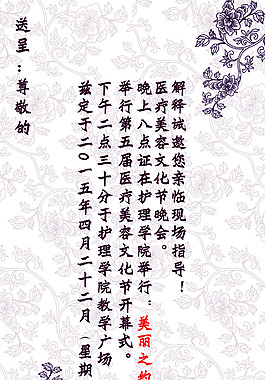 送呈：尊敬的
兹定于二〇一五年四月二十二月（星期
下午二点三十分于护理学院教学广场
举行第五届医疗美容文化节开幕式。
晚上八点证在护理学院举行：美丽之约
医疗美容文化节晚会。
解释诚邀您亲临现场指导！